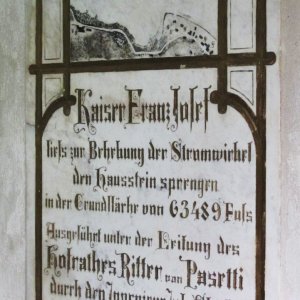 Kaiser Franz Josef
ließ zur Behebung der Stromwirbel
den Hausstein sprengen
in der Grundfläche von 63489 Fuß
Ausgeführt unter der Leitung des
Hofrathes Ritter von Pasetti
durch den Ingenieur